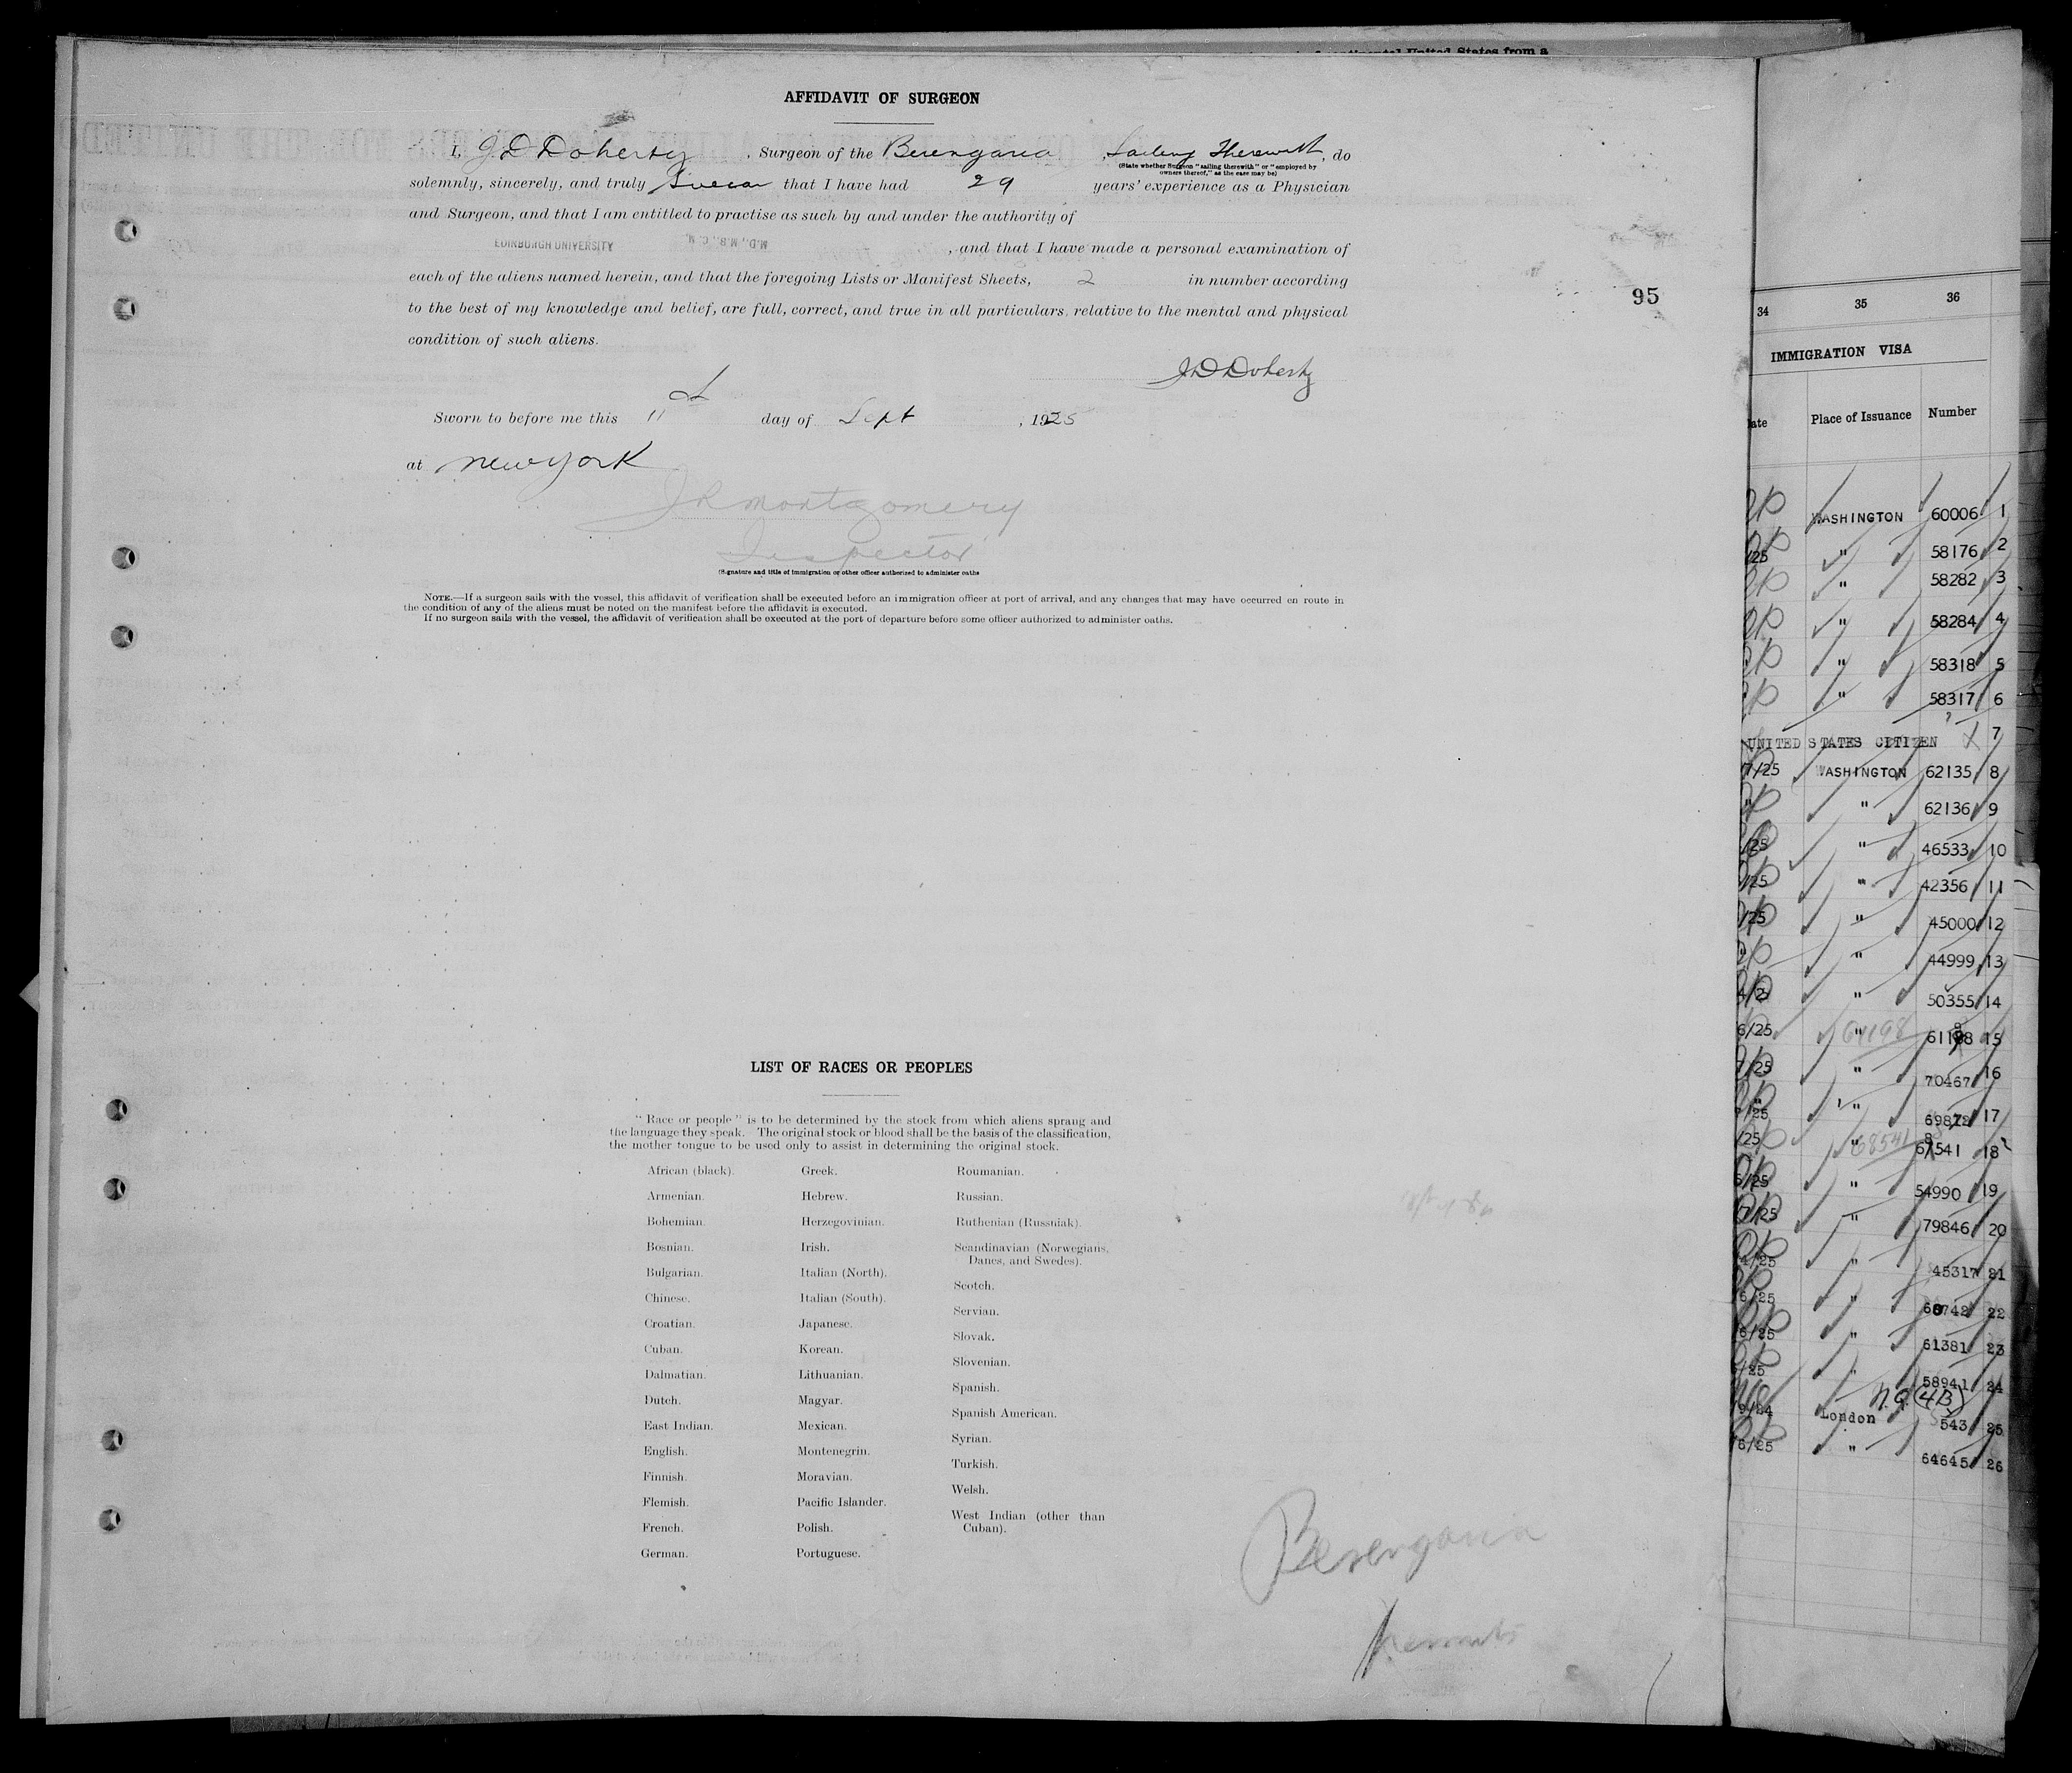 continental United States from a
AFFIDAVIT OF SURGEON
I, J D Doherty , Surgeon of the Berengaria , Sailing Therewith, do
(State whether Surgeon "sailing therewith" or "employed by
owners thereof," as the case may be)
solemnly, sincerely, and truly Swear that I have had 29 years' experience as a Physician
and Surgeon, and that I am entitled to practise as such by and under the authority of
EDINBURGH UNIVERSITY M.D., M.B., C.M. , and that I have made a personal examination of
each of the aliens named herein, and that the foregoing Lists or Manifest Sheets, 2 in number according
to the best of my knowledge and belief, are full, correct, and true in all particulars relative to the mental and physical
condition of such aliens.
J D Doherty
Sworn to before me this 11 day of Sept , 1925
at New York
J R Montgomery
Inspector
(Signature and title of immigration or other officer authorized to administer oaths
NOTE.—If a surgeon sails with the vessel, this affidavit of verification shall be executed before an immigration officer at port of arrival, and any changes that may have occurred en route in
the condition of any of the aliens must be noted on the manifest before the affidavit is executed.
If no surgeon sails with the vessel, the affidavit of verification shall be executed at the port of departure before some officer authorized to administer oaths.
95
LIST OF RACES OR PEOPLES
"Race or people" is to be determined by the stock from which aliens sprang and
the language they speak. The original stock or blood shall be the basis of the classification,
the mother tongue to be used only to assist in determining the original stock.
African (black).
Armenian.
Bohemian.
Bosnian.
Bulgarian.
Chinese.
Croatian.
Cuban.
Dalmatian.
Dutch.
East Indian.
English.
Finnish.
Flemish.
French.
German.
Greek.
Hebrew.
Herzegovinian.
Irish.
Italian (North).
Italian (South).
Japanese.
Korean.
Lithuanian.
Magyar.
Mexican.
Montenegrin.
Moravian.
Pacific Islander.
Polish.
Portuguese.
Roumanian.
Russian.
Ruthenian (Russniak).
Scandinavian (Norwegians,
Danes, and Swedes).
Scotch.
Servian.
Slovak.
Slovenian.
Spanish.
Spanish American.
Syrian.
Turkish.
Welsh.
West Indian (other than
Cuban).
Berengaria
Permits
34 35 36
IMMIGRATION VISA
ate Place of Issuance Number
WASHINGTON 60006 1
/25 " 58176 2
" 58282 3
" 58284 4
" 58318 5
" 58317 6
UNITED STATES CITIZEN 7
7/25 WASHINGTON 62135 8
" " 62136 9
/25 " 46533 10
/25 " 42356 11
/25 " 45000 12
" 44999 13
4/2 " 50355 14
6/25 " 64198 15
7/25 " 70467 16
/25 " 17
/25 " 68541 18
5/25 " 54990 19
7/25 " 79846 20
4/25 " 45317 21
6/25 " 22
6/25 " 61381 23
/25 " 58941 24
N.Q. (4B)
9/24 London 543 25
6/25 " 64645 26